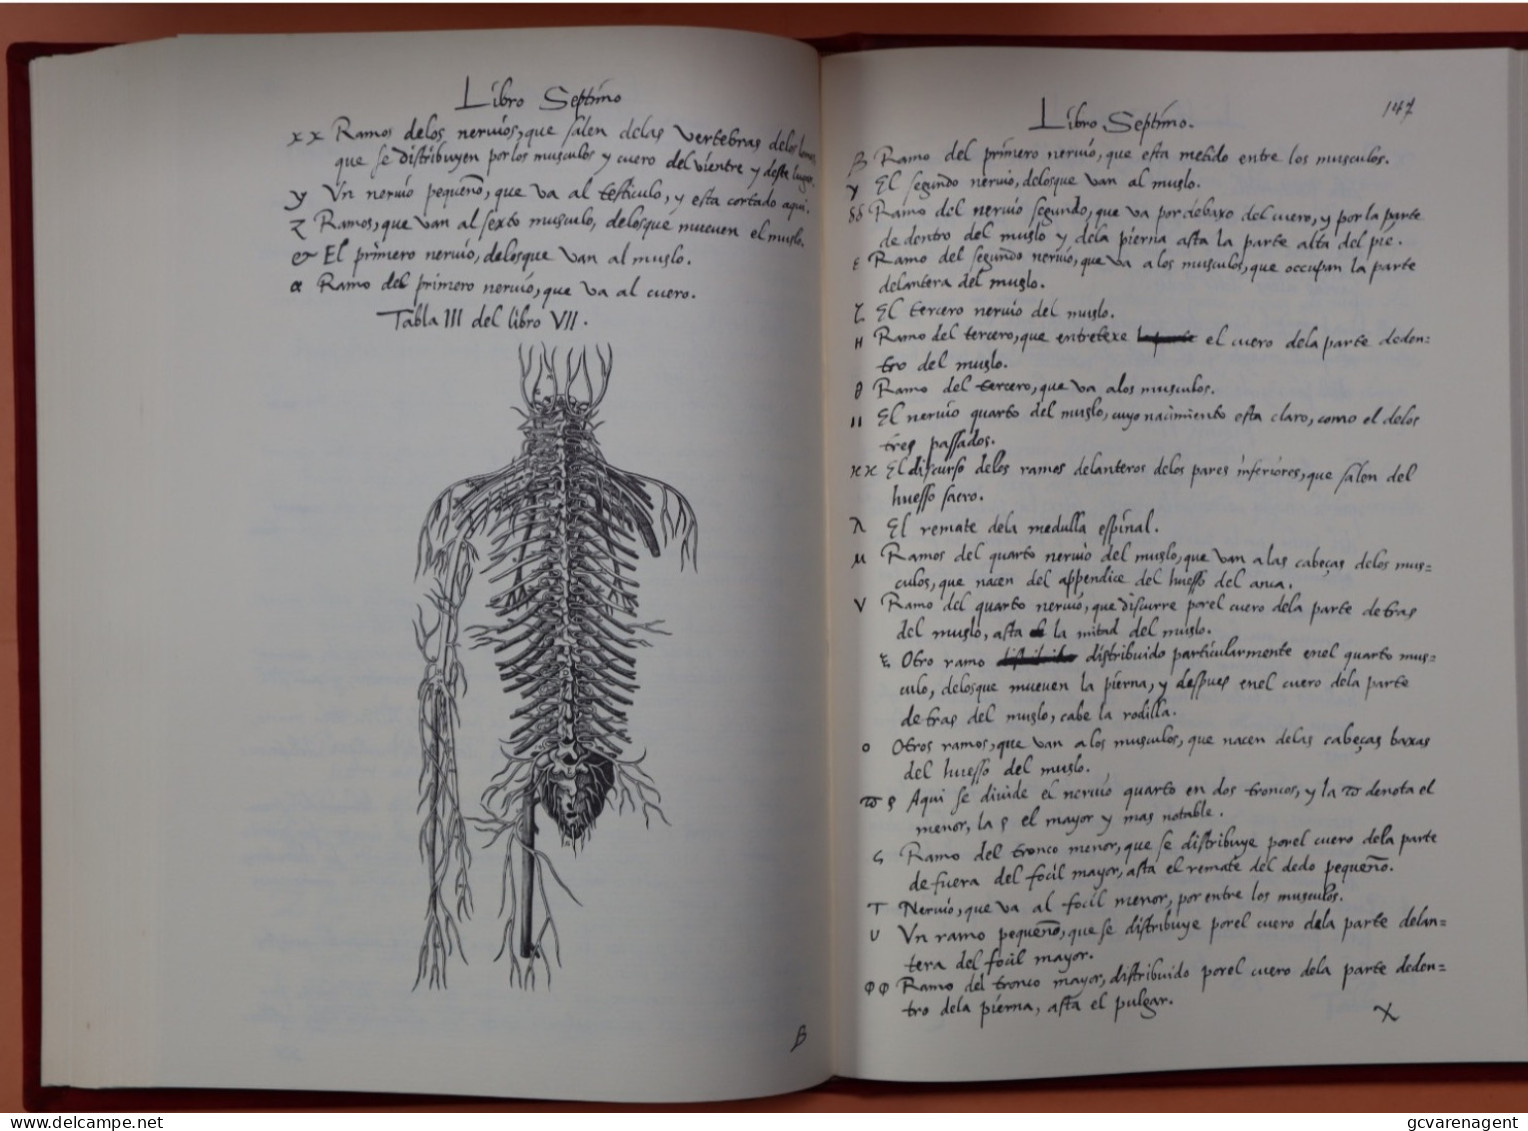 Libro Septimo
x x Ramos delos nervios, que salen delas vertebras delos lomos,
que se distribuyen por los musculos y cuero del vientre y deste lugar.
y Vn nervio pequeño, que va al testiculo, y esta cortado aqui.
z Ramos, que van al sexto musculo, delosque mueuen el muslo.
& El primero nervio, delosque van al muslo.
α Ramo del primero nervio, que va al cuero.
Tabla III del libro VII.
β
Libro Septimo.
147
β Ramo del primero nervio, que esta metido entre los musculos.
γ El segundo nervio, delosque van al muslo.
δδ Ramo del nervio segundo, que va por debaxo del cuero, y por la parte
de dentro del muslo y dela pierna asta la parte alta del pie.
ε Ramo del segundo nervio, que va a los musculos, que occupan la parte
delantera del muslo.
ζ El tercero nervio del muslo.
H Ramo del tercero, que entretexe la parte el cuero dela parte deden=
tro del muslo.
θ Ramo del tercero, que va alos musculos.
ιι El nervio quarto del muslo, cuyo nacimiento esta claro, como el delos
tres passados.
κκ El discurso delos ramos delanteros delos pares inferiores, que salen del
huesso sacro.
λ El remate dela medulla espinal.
μ Ramos del quarto nervio del muslo, que van a las cabeças delos mus=
culos, que nacen del appendice del huesso del anca.
ν Ramo del quarto nervio, que discurre porel cuero dela parte detras
del muslo, asta la mitad del muslo.
ξ Otro ramo distribuido particularmente enel quarto mus=
culo, delosque mueuen la pierna, y despues enel cuero dela parte
detras del muslo, cabe la rodilla.
o Otros ramos, que van a los musculos, que nacen delas cabeças baxas
del huesso del muslo.
ϖ ρ Aqui se divide el nervio quarto en dos troncos, y la ϖ denota el
menor, la ρ el mayor y mas notable.
ς Ramo del tronco menor, que se distribuye porel cuero dela parte
de fuera del focil mayor, asta el remate del dedo pequeño.
T Nervio, que va al focil menor, por entre los musculos.
υ Vn ramo pequeño, que se distribuye porel cuero dela parte delan=
tera del focil mayor.
φφ Ramo del tronco mayor, distribuido porel cuero dela parte deden=
tro dela pierna, asta el pulgar.
χ
delcampe.net
gcvarenagent